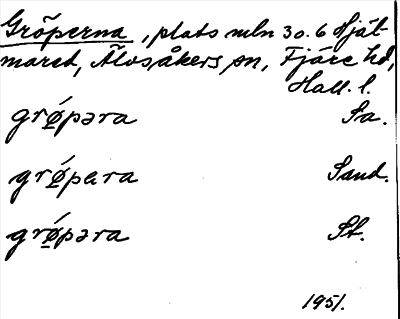 Gröperna, plats mln 3 o. 6 Hjät-
mared, Älvsåkers sn, Fjäre hd,
Hall. l.
grǿ̱pəra Sa.
grǿ̱pɐra Sand.
grǿ̱pəra St.
1951.